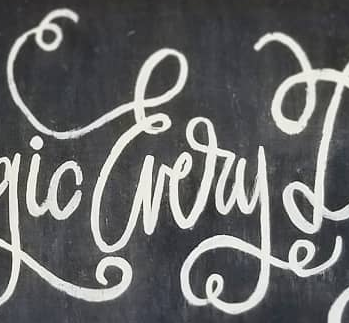 gic Every D